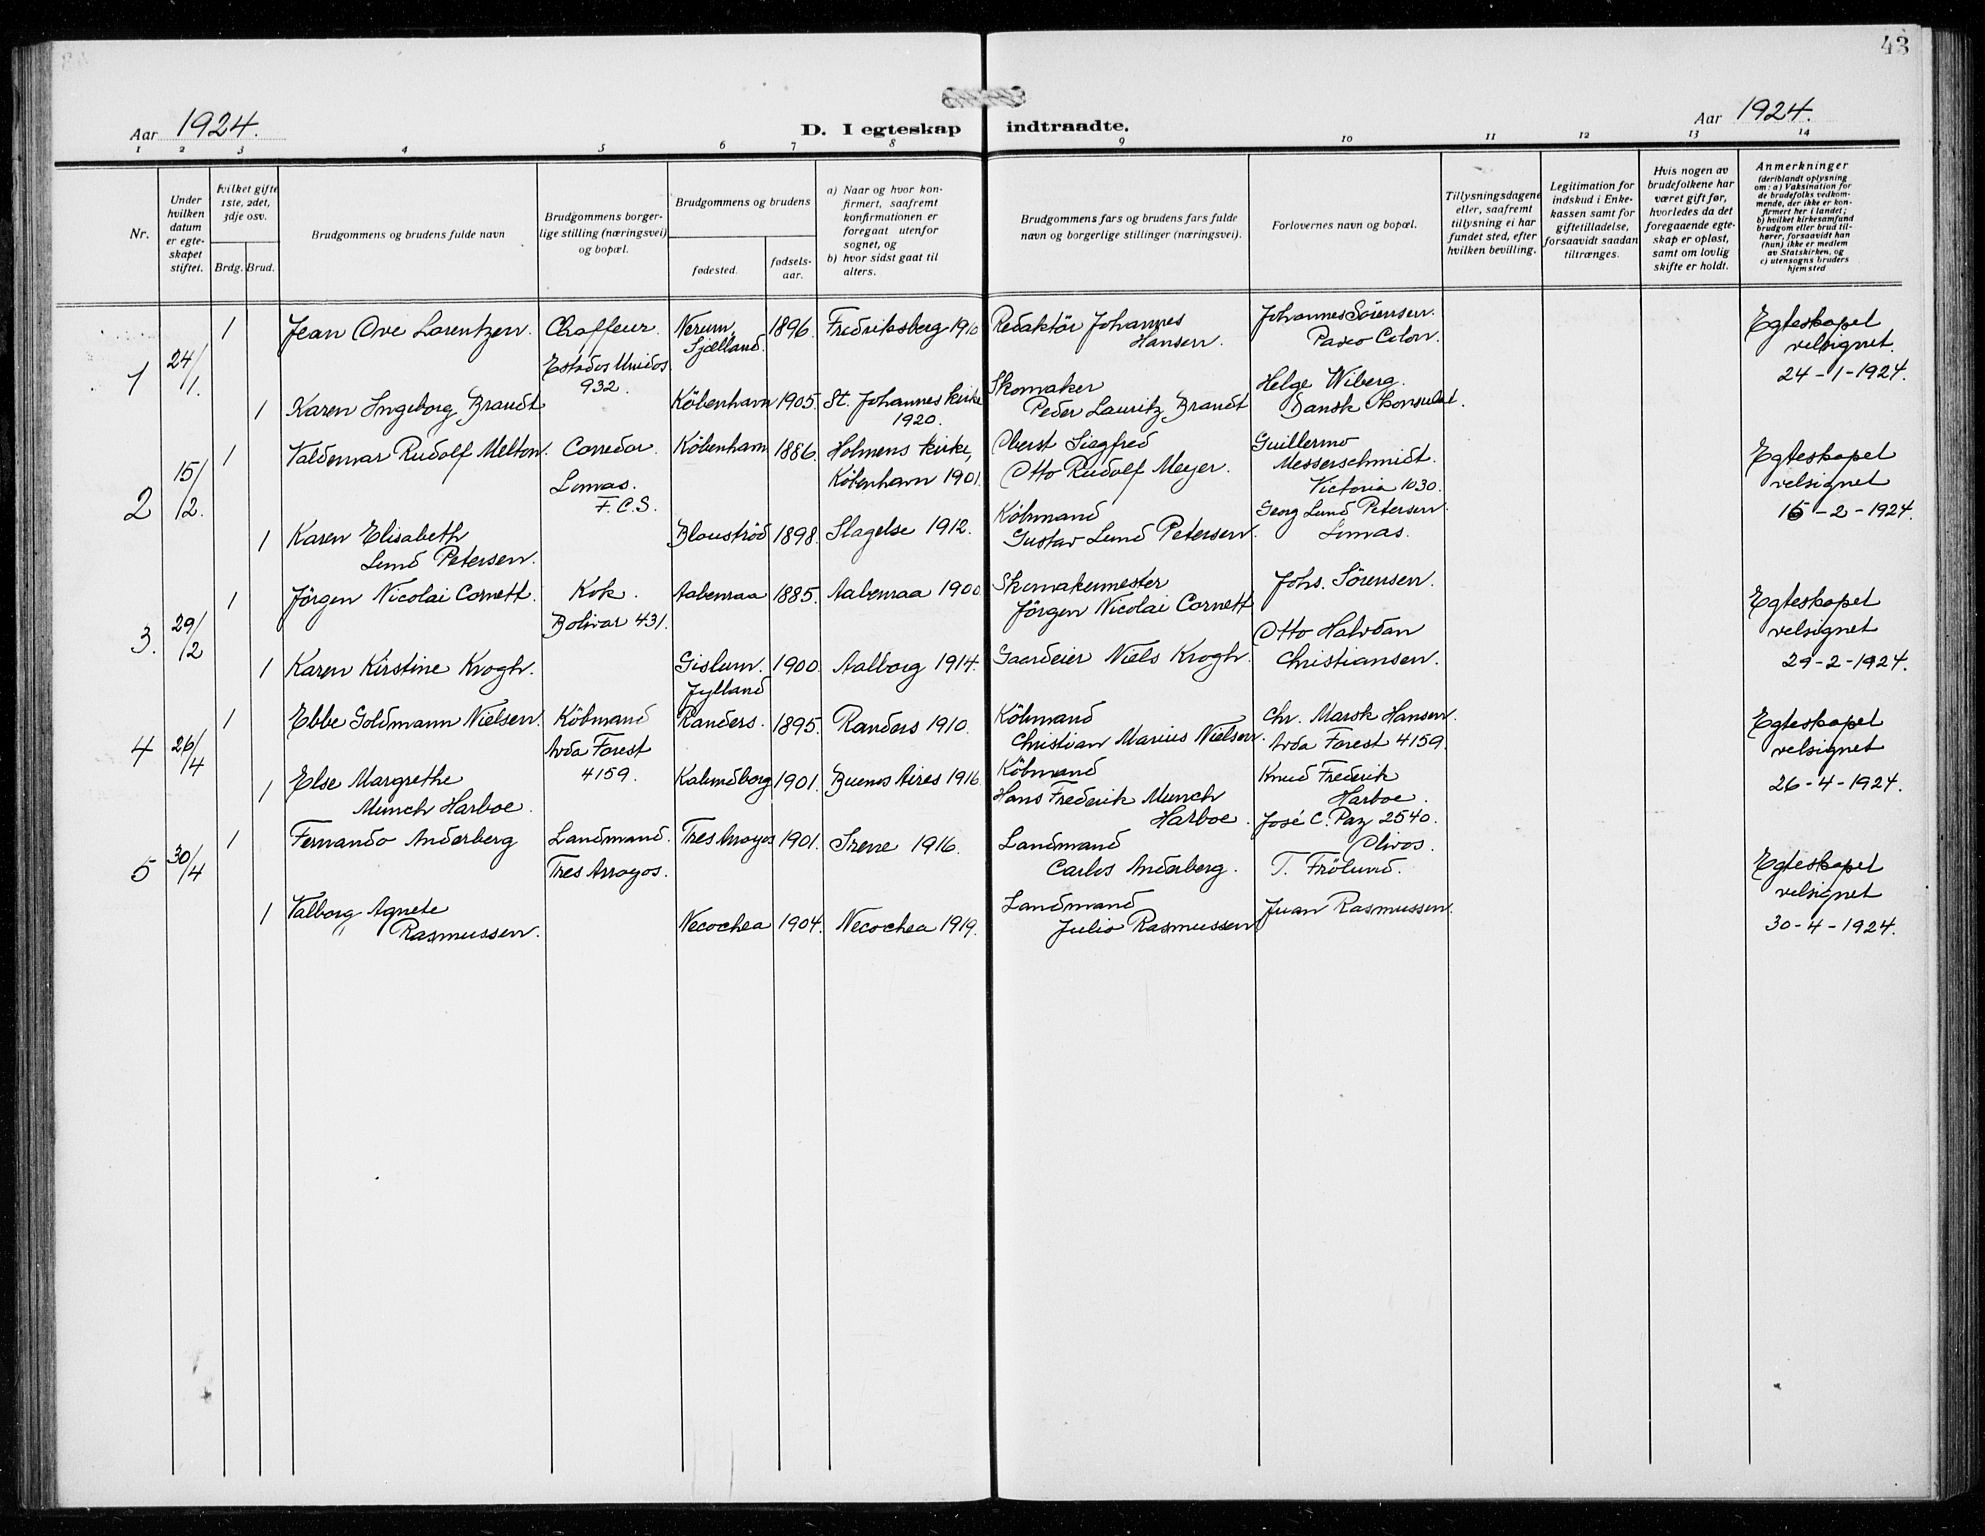 43
Aar 1924.
D. I egteskap indtraadte.
Aar 1924.
1 2 3 4 5 6 7 8 9 10 11 12 13 14
Nr.
Under hvilken datum er egteskapet stiftet.
hvilket gifte 1ste, 2det, 3dje osv.
Brdg. Brud.
Brudgommens og brudens fulde navn
Brudgommens borgerlige stilling (næringsvei) og bopæl.
Brudgommens og brudens
fødested.
fødselsaar.
a) Naar og hvor konfirmert, saafremt konfirmationen er foregaat utenfor sognet, og
b) hvor sidst gaat til alters.
Brudgommens fars og brudens fars fulde navn og borgerlige stillinger (næringsvei).
Forlovernes navn og bopæl.
Tillysningsdagene eller, saafremt tillysning ei har fundet sted, efter hvilken bevilling.
Legitimation for indskud i Enkekassen samt for giftetilladelse, forsaavidt saadan tiltrænges.
Hvis nogen av brudefolkene har været gift før, hvorledes da det foregaaende egteskap er opløst, samt om lovlig skifte er holdt.
Anmerkninger
(deriblandt oplysning om: a) Vaksination for de brudefolks vedkommende, der ikke er konfirmert her i landet; b) hvilket kirkesamfund brudgom eller brud tilhører, forsaavidt han (hun) ikke er medlem av Statskirken, og c) utensogns bruders hjemsted
1 24/1.
1 Jean Ove Lorentzen. Chaffeur. Estados Unidos 932. Nerum, Sjælland. 1896. Fredriksberg 1910 Redaktör Johannes Hansen. Johannes Sörensen. Paseo Colon.
1 Karen Ingeborg Brandt København 1905. St. Johannes Kirke 1920. Skomaker Peder Lauritz Brandt Helge Wiberg. Dansk Konsulat.
Egteskapet velsignet. 24-1-1924.
2 15/2.
1 Valdemar Rudolf Melton. Corredor. Lomas. F.C.S. København 1886. Holmens Kirke, København 1901. Oberst Siegfred Otto Rudolf Meyer. Guillermo Messerschmidt. Victoria 1030.
1 Karen Elisabeth Lund Petersen. Blovströd 1898. Slagelse 1912. Köbmand Gustav Lund Petersen. Georg Lund Petersen. Lomas.
Egteskapet velsignet 15-2-1924.
3. 29/2
1 Jörgen Nicolai Cornett. Kok. Bolivar 431. Aabenraa 1885. Aabenraa 1900. Skomakermester Jörgen Nicolai Cornett Johs. Sörensen.
1 Karen Kirstine Krogh. Gislum. Jylland 1900. Aalborg 1914. Gaardeier Niels Krogh. Otto Halvdan Christiansen.
Egteskapet velsignet 29-2-1924.
4 26/4
1 Ebbe Goldmann Nielsen. Köbmand Avda Forest 4159. Randers. 1895. Randers 1910. Köbmand Christian Marius Nielsen. Chr. Marsk Hansen. Avda Forest 4159.
1 Else Margrethe Munch Harboe. Kalundborg 1901. Buenos Aires 1916. Köbmand Hans Frederik Munch Harboe. Knud Frederik Harboe. José C. Paz 2540. Olivos.
Egteskapet velsignet 26-4-1924.
5 30/4
1 Fernando Anderberg Landmand. Tres Arroyos. Tres Arroyos 1901. Irene 1916. Landmand Carlos Anderberg. T. Frölund.
1 Valborg Agnete Rasmussen. Necochea 1904. Necochea 1919. Landmand Julio Rasmussen Juan Rasmussen.
Egteskapet velsignet 30-4-1924.